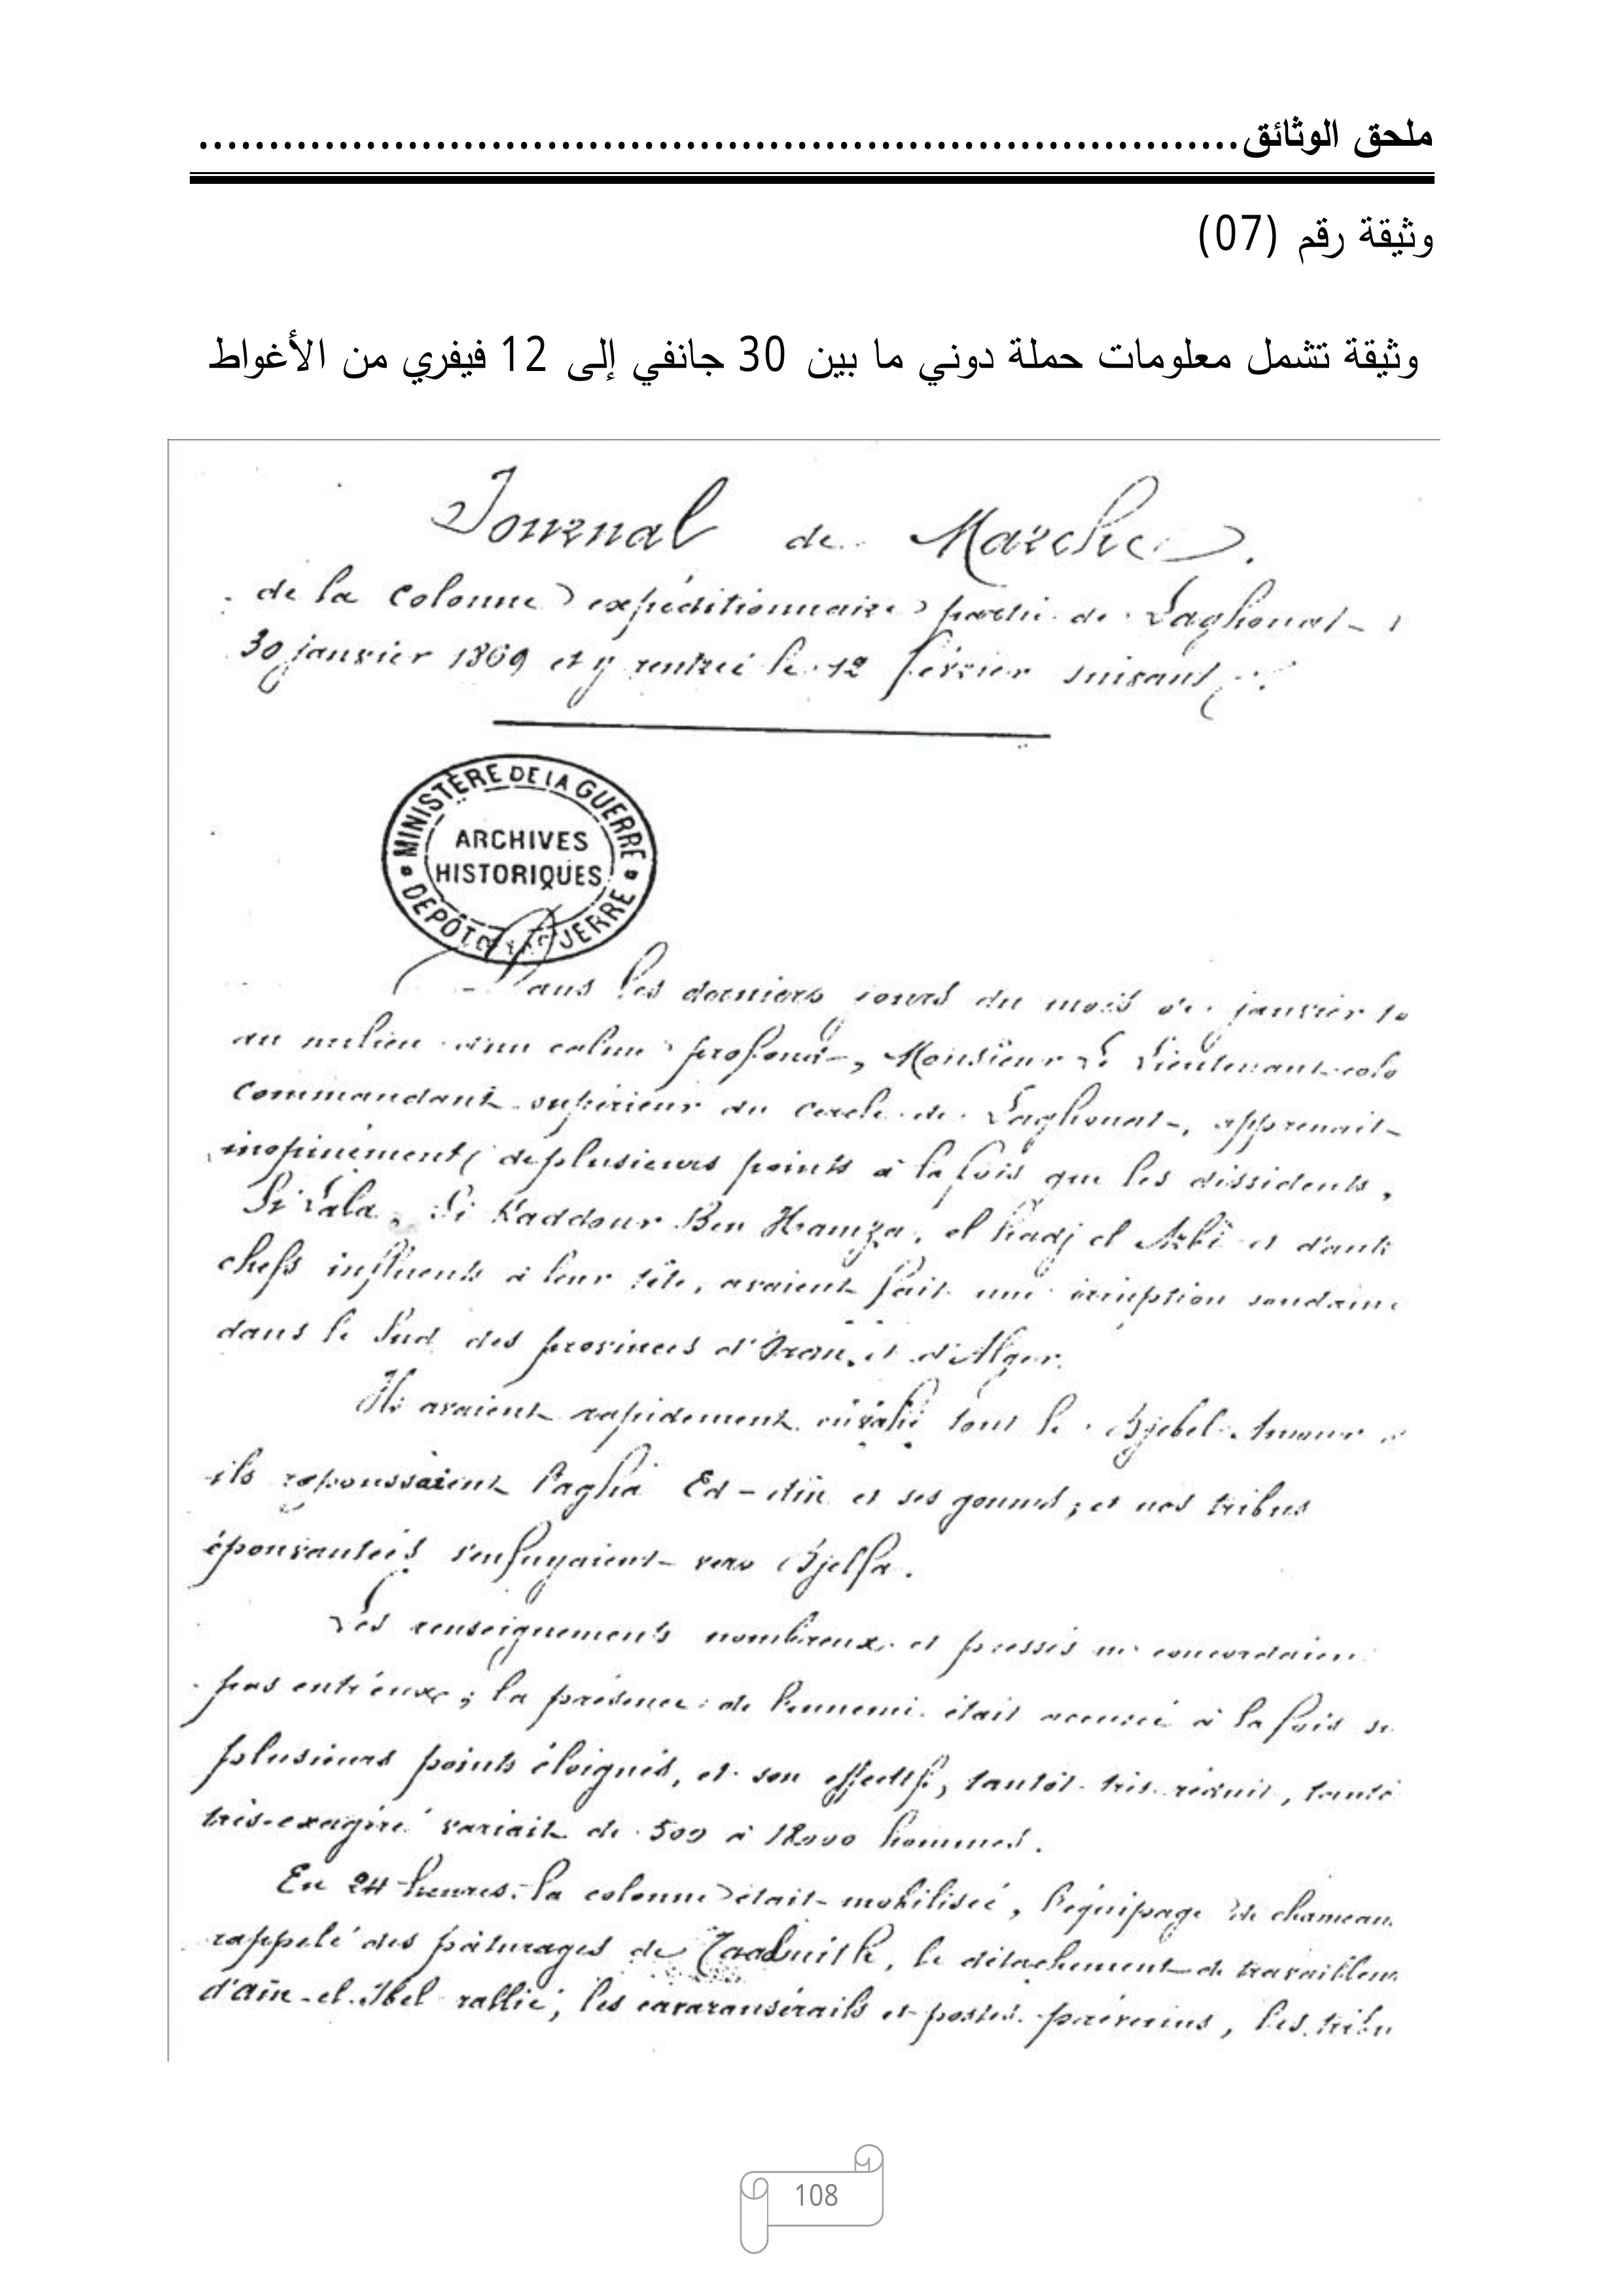 ملحق الوثائق...........................................................................
وثيقة رقم (07)
وثيقة تشمل معلومات حملة دوني ما بين 30 جانفي إلى 12 فيفري من الأغواط
Journal de Marche.
de la colonne expéditionnaire partie de Laghouat
30 janvier 1869 et y rentrée le 12 février suivant
MINISTÈRE DE LA GUERRE
ARCHIVES
HISTORIQUES
DÉPÔT GUERRE
Dans les derniers jours du mois de janvier
au milieu d'un calme profond, Monsieur Le Lieutenant-colo
commandant supérieur du cercle de Laghouat, apprenait
inopinément, de plusieurs points à la fois que les dissidents,
Si Lala, Si Kaddour Ben Hamza, el hadj el Arbi et d'aut
chefs influents à leur tête, avaient fait une irruption soudaine
dans le Sud des provinces d'Oran et d'Alger.
Ils avaient rapidement envahi tout le Djebel-Amour
ils repoussaient l'agha Ed-din et ses goums; et nos tribus
épouvantées s'enfuyaient vers Djelfa.
Les renseignements nombreux et pressés ne concordaien
pas entr'eux; la présence de l'ennemi était accusée à la fois
plusieurs points éloignés, et son effectif, tantôt très réduit, tantô
très-exagéré variait de 500 à 12000 hommes.
En 24 heures la colonne était mobilisée, l'équipage de chameau
rappelé des pâturages de Taadmith, le détachement de travailleurs
d'Aïn-el-Ibel rallié, les caravansérails et postes prévenus, les tribu
108